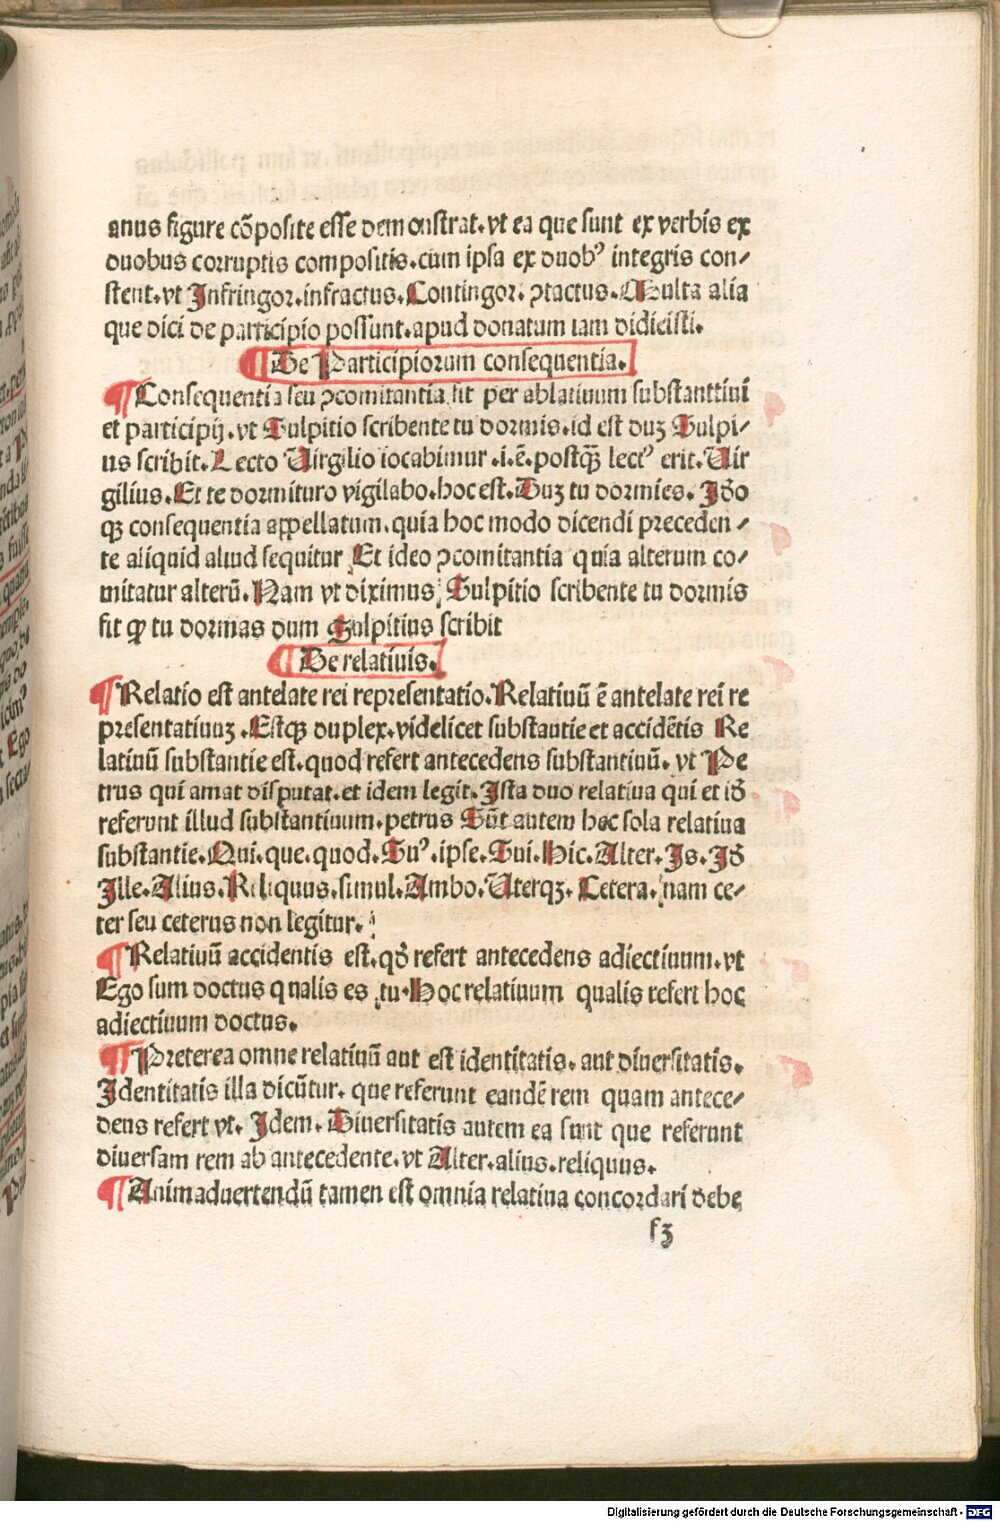 anus figure cōposite esse demonstrat. vt ea que sunt ex verbis ex
duobus corruptis compositis. cum ipsa ex duobꝰ integris con⸗
stent. vt Infringor. infractus. Contingor. ꝯtactus. Multa alia
que dici de participio possunt. apud donatum iam didicisti.
¶ De Participiorum consequentia.
¶ Consequentia seu ꝯcomitantia fit per ablatiuum substanttiui
et participij. vt Sulpitio scribente tu dormis. id est duꝫ Sulpi⸗
us scribit. Lecto Virgilio iocabimur .i. ē. postqꝫ̄ lectꝰ erit. Uir
gilius. Et te dormituro vigilabo. hoc est. Duꝫ tu dormies. Idō
qꝫ consequentia appellatum. quia hoc modo dicendi preceden⸗
te aliquid aliud sequitur Et ideo ꝯcomitantia quia alterum co⸗
mitatur alterū. Nam vt diximus Sulpitio scribente tu dormis
fit ꝙ tu dormas dum Sulpitius scribit
¶ De relatiuis.
¶ Relatio est antelate rei representatio. Relatiuū ē antelate rei re
presentatiuuꝫ. Estqꝫ duplex. videlicet substantie et accidētis Re
latiuū substantie est. quod refert antecedens substantiuū. vt Pe
trus qui amat disputat. et idem legit. Ista duo relatiua qui et id̄
referunt illud substantiuum. petrus Sūt autem hec sola relatiua
substantie. Qui. que. quod. Suꝰ. ipse. Sui. Hic. Alter. Is. Id̄
Ille. Alius. Reliquus. simul. Ambo. Uterqꝫ. Cetera. nam ce⸗
ter seu ceterus non legitur.
¶ Relatiuū accidentis est. qd̄ refert antecedens adiectiuum. vt
Ego sum doctus qualis es tu. Hoc relatiuum qualis refert hoc
adiectiuum doctus.
¶ Preterea omne relatiuū aut est identitatis. aut diuersitatis.
Identitatis illa dicūtur. que referunt eandē rem quam antece⸗
dens refert vt. Idem. Diuersitatis autem ea sunt que referunt
diuersam rem ab antecedente. vt Alter. alius. reliquus.
¶ Animaduertendū tamen est omnia relatiua concordari debe
f3
Digitalisierung gefördert durch die Deutsche Forschungsgemeinschaft - DFG